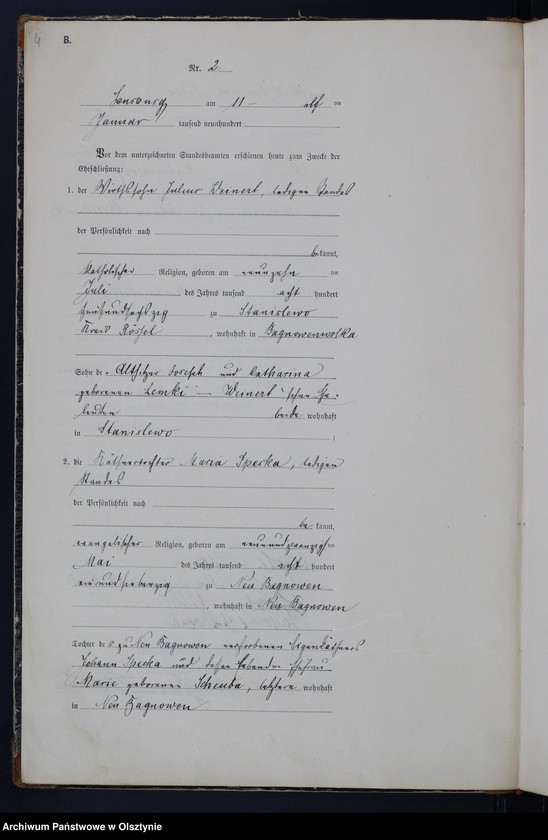 4
B.
Nr. 2
Sensburg am 11 – elf ten
Januar tausend neunhundert
Vor dem unterzeichneten Standesbeamten erschienen heute zum Zwecke der
Eheschließung:
1. der Wirthssohn Julius Weinert, ledigen Standes
der Persönlichkeit nach
be kannt,
katholischer Religion, geboren am neunzehn ten
Juli des Jahres tausend acht hundert
zu Stanislewo
Kreis Rössel, wohnhaft in Bagnowenwolka
Sohn des Altsitzer Joseph und Catharina
geborenen Lemki – Weinert'schen Ehe-
leuten beide wohnhaft
in Stanislewo;
2. die Käthnertochter Maria Specka, ledigen
Standes
der Persönlichkeit nach
be kannt,
evangelischer Religion, geboren am neunundzwanzigsten
Mai des Jahres tausend acht hundert
vierundsiebenzig zu Neu Bagnowen
, wohnhaft in Neu Bagnowen
Tochter des zu Neu Bagnowen verstorbenen Eigenkäthners
Johann Specka und dessen lebenden Ehefrau
Marie geborenen Scheuba, letztere wohnhaft
in Neu Bagnowen
Archiwum Państwowe w Olsztynie